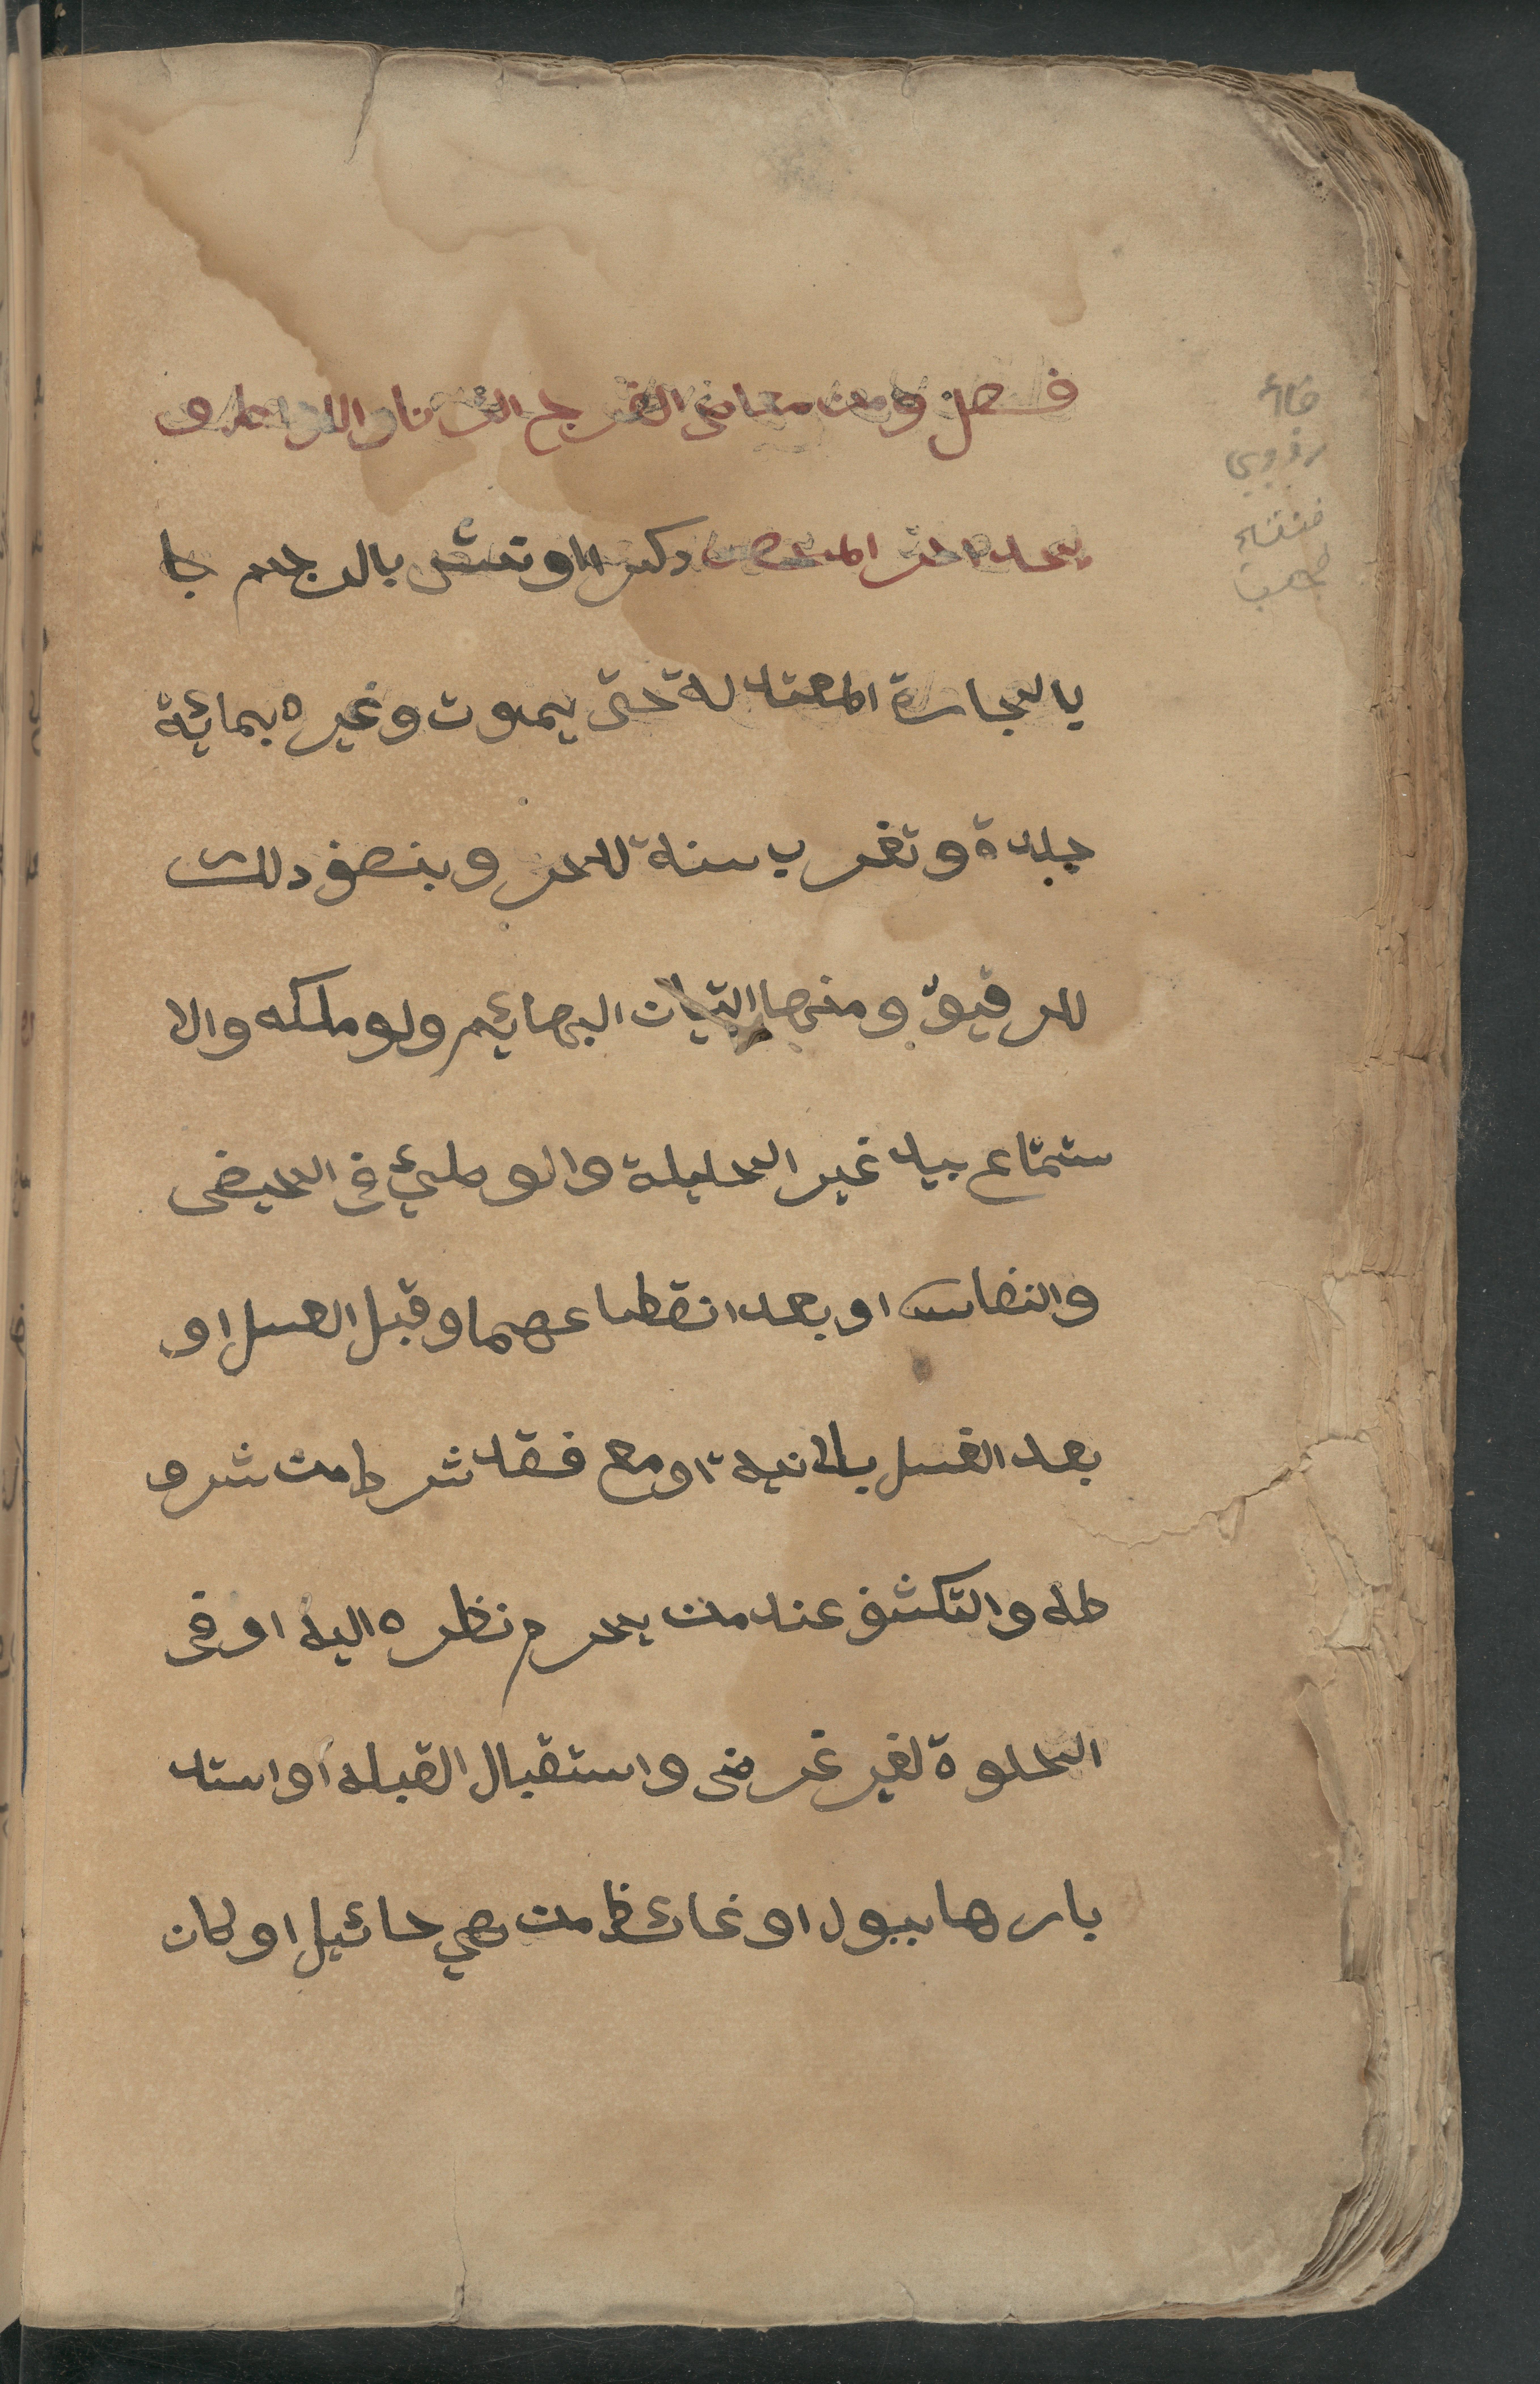 فصل ومن معاصى الفرج الزنا واللواط و
يحد الحر المحصن ذكرا او نثى بالرجم با
بالحجارة المعتد لة حتى يموت وغيره بمائة
جلدة وتغريب سنة للحر وبنصف ذلك
للرقيق ومنها اتيان البهائم ولو ملكه والا
ستمتاع بيد غير الحليلة والوطئ فى الحيض
والنفاس او بعد انقطاعهما وقبل الغسل او
بعد الغسل بلانية او مع فقد شرط من شرو
طه والتكشف عند من يحرم نظره اليه او فى
الخلوة لغير غرض واستقبال القبلة او استد
بارها ببول او غائط من غير حائيل او كان